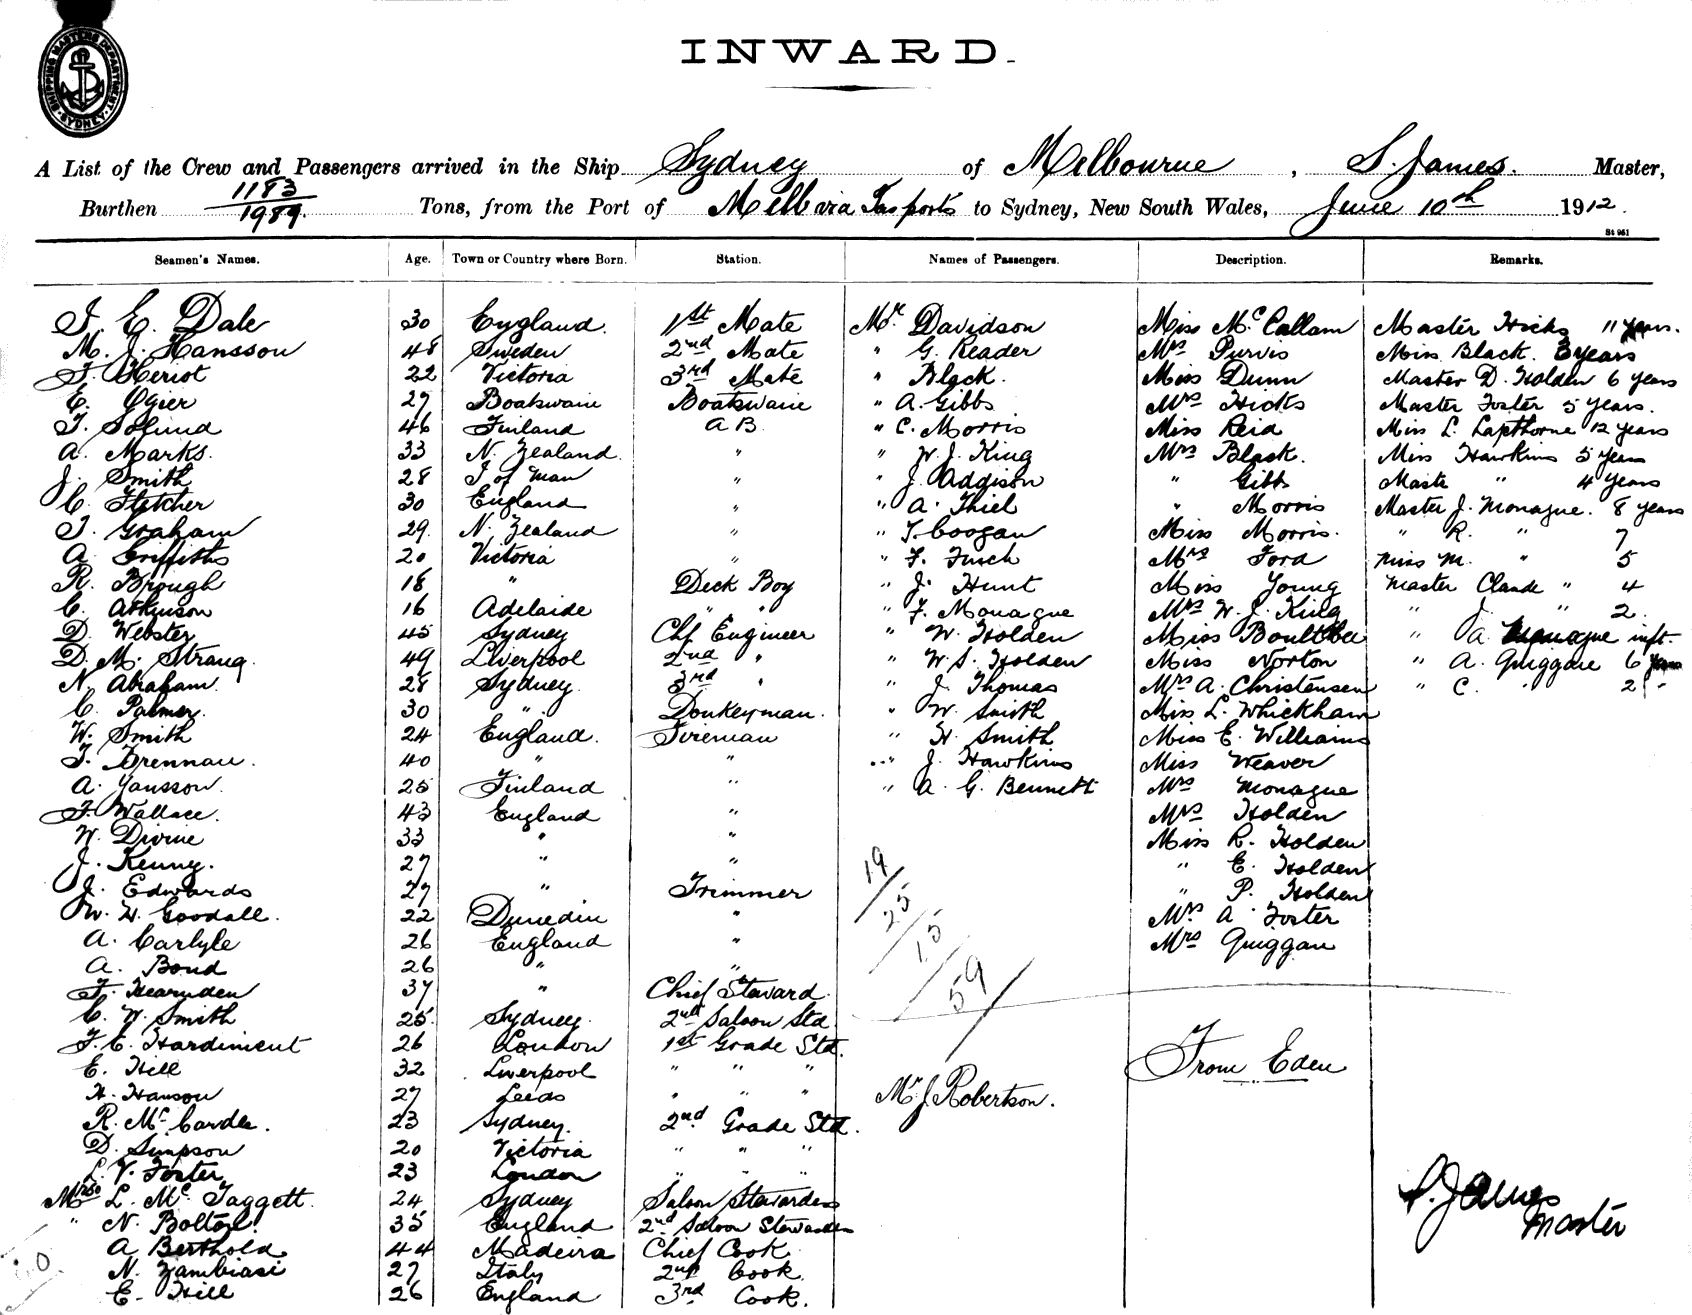 SHIPPING MASTERS DEPARTMENT SYDNEY
INWARD.
A List of the Crew and Passengers arrived in the Ship Sydney of Melbourne, S. James. Master,
Burthen 1183/1989. Tons, from the Port of Melb via Tas ports to Sydney, New South Wales, June 10th 1912.
St 961
Seamen's Names. Age. Town or Country where Born. Station. Names of Passengers. Description. Remarks.
J. E. Dale 30 England. 1st Mate Mr. Davidson Miss McCallam Master Hicks 11 years.
M. J. Hansson 48 Sweden 2nd Mate " G. Reader Mrs Purvis Miss Black. 3 years
F. Heriot 22 Victoria 3rd Mate " Black. Miss Dunn Master D. Holden 6 years
E. Ogier 27 Boatswain Boatswain " A. Gibbs Mrs Hicks Master Foster 5 years.
J. Solund 46 Finland A B. " C. Morris Miss Reid Miss L. Lapthorne 12 years
A. Marks. 33 N. Zealand. " " W. J. King Mrs Black. Miss Hawkins 5 years
J. Smith 28 I of Man " " J. Addison " Gibbs Maste " 4 years
C. Fletcher 30 England " " A. Thiel " Morris Master J. Monague. 8 years
T. Graham 29. N. Zealand " " T. Coogan Miss Morris. " R. " 7
A. Griffiths 20 Victoria " " F. Finch Mrs Ford Miss M. " 5
R. Brough 18 " Deck Boy " J. Hunt Miss Young Master Claude " 4
C. Atkinson 16 Adelaide " " " F. Monague Mrs W. J. King " J. " 2
D. Webster 45 Sydney Chf Engineer " W. Holden Miss Boultbee " A Monague inft.
D. M. Strang. 49 Liverpool 2nd " " W. S. Holden Miss Norton " A. Quiggan 6 years
N. Abraham. 28 Sydney. 3rd " " J. Thomas Mrs A. Christensen " C. " 2 "
C. Palmer. 30 " Donkeyman. " W. Smith Miss L. Whickham
W. Smith 24 England. Fireman " H. Smith Miss E. Williams
T. Brennan. 40 " " " J. Hawkins Miss Weaver
A. Jansson. 25 Finland " " A. G. Bennett Mrs Monague
F. Wallace. 43 England " Mrs Holden
W. Divine 33 " " Miss R. Holden
J. Kenny. 27 " " " E. Holden
J. Edwards 27 " Trimmer " P. Holden
W. H. Goodall. 22 Dunedin " Mrs. A Foster
A. Carlyle 26 England " Mrs Quiggan
A. Bond 26 " "
F. Hearnden 37 " Chief Steward.
C. W. Smith 25. Sydney. 2nd Saloon Std
F. C. Hardiment 26 London 1st Grade Std.
E. Hill 32 Liverpool " " "
H. Hanson 27 Leeds " " "
R. McCardle. 23 Sydney. 2nd Grade Std.
D. Simpson 20 Victoria " " "
L. V. Foster 23 London " " "
Mrs L. McTaggett. 24 Sydney Saloon Stewardess
" N. Bolton. 35 England 2nd Saloon Stewardess
A Berthold. 44 Madeira Chief Cook.
N. Zambiasi 27 Italy 2nd Cook.
E. Hill 26 England 3rd Cook.
19
25
15
59
From Eden
Mr J. Robertson.
S. James
Master